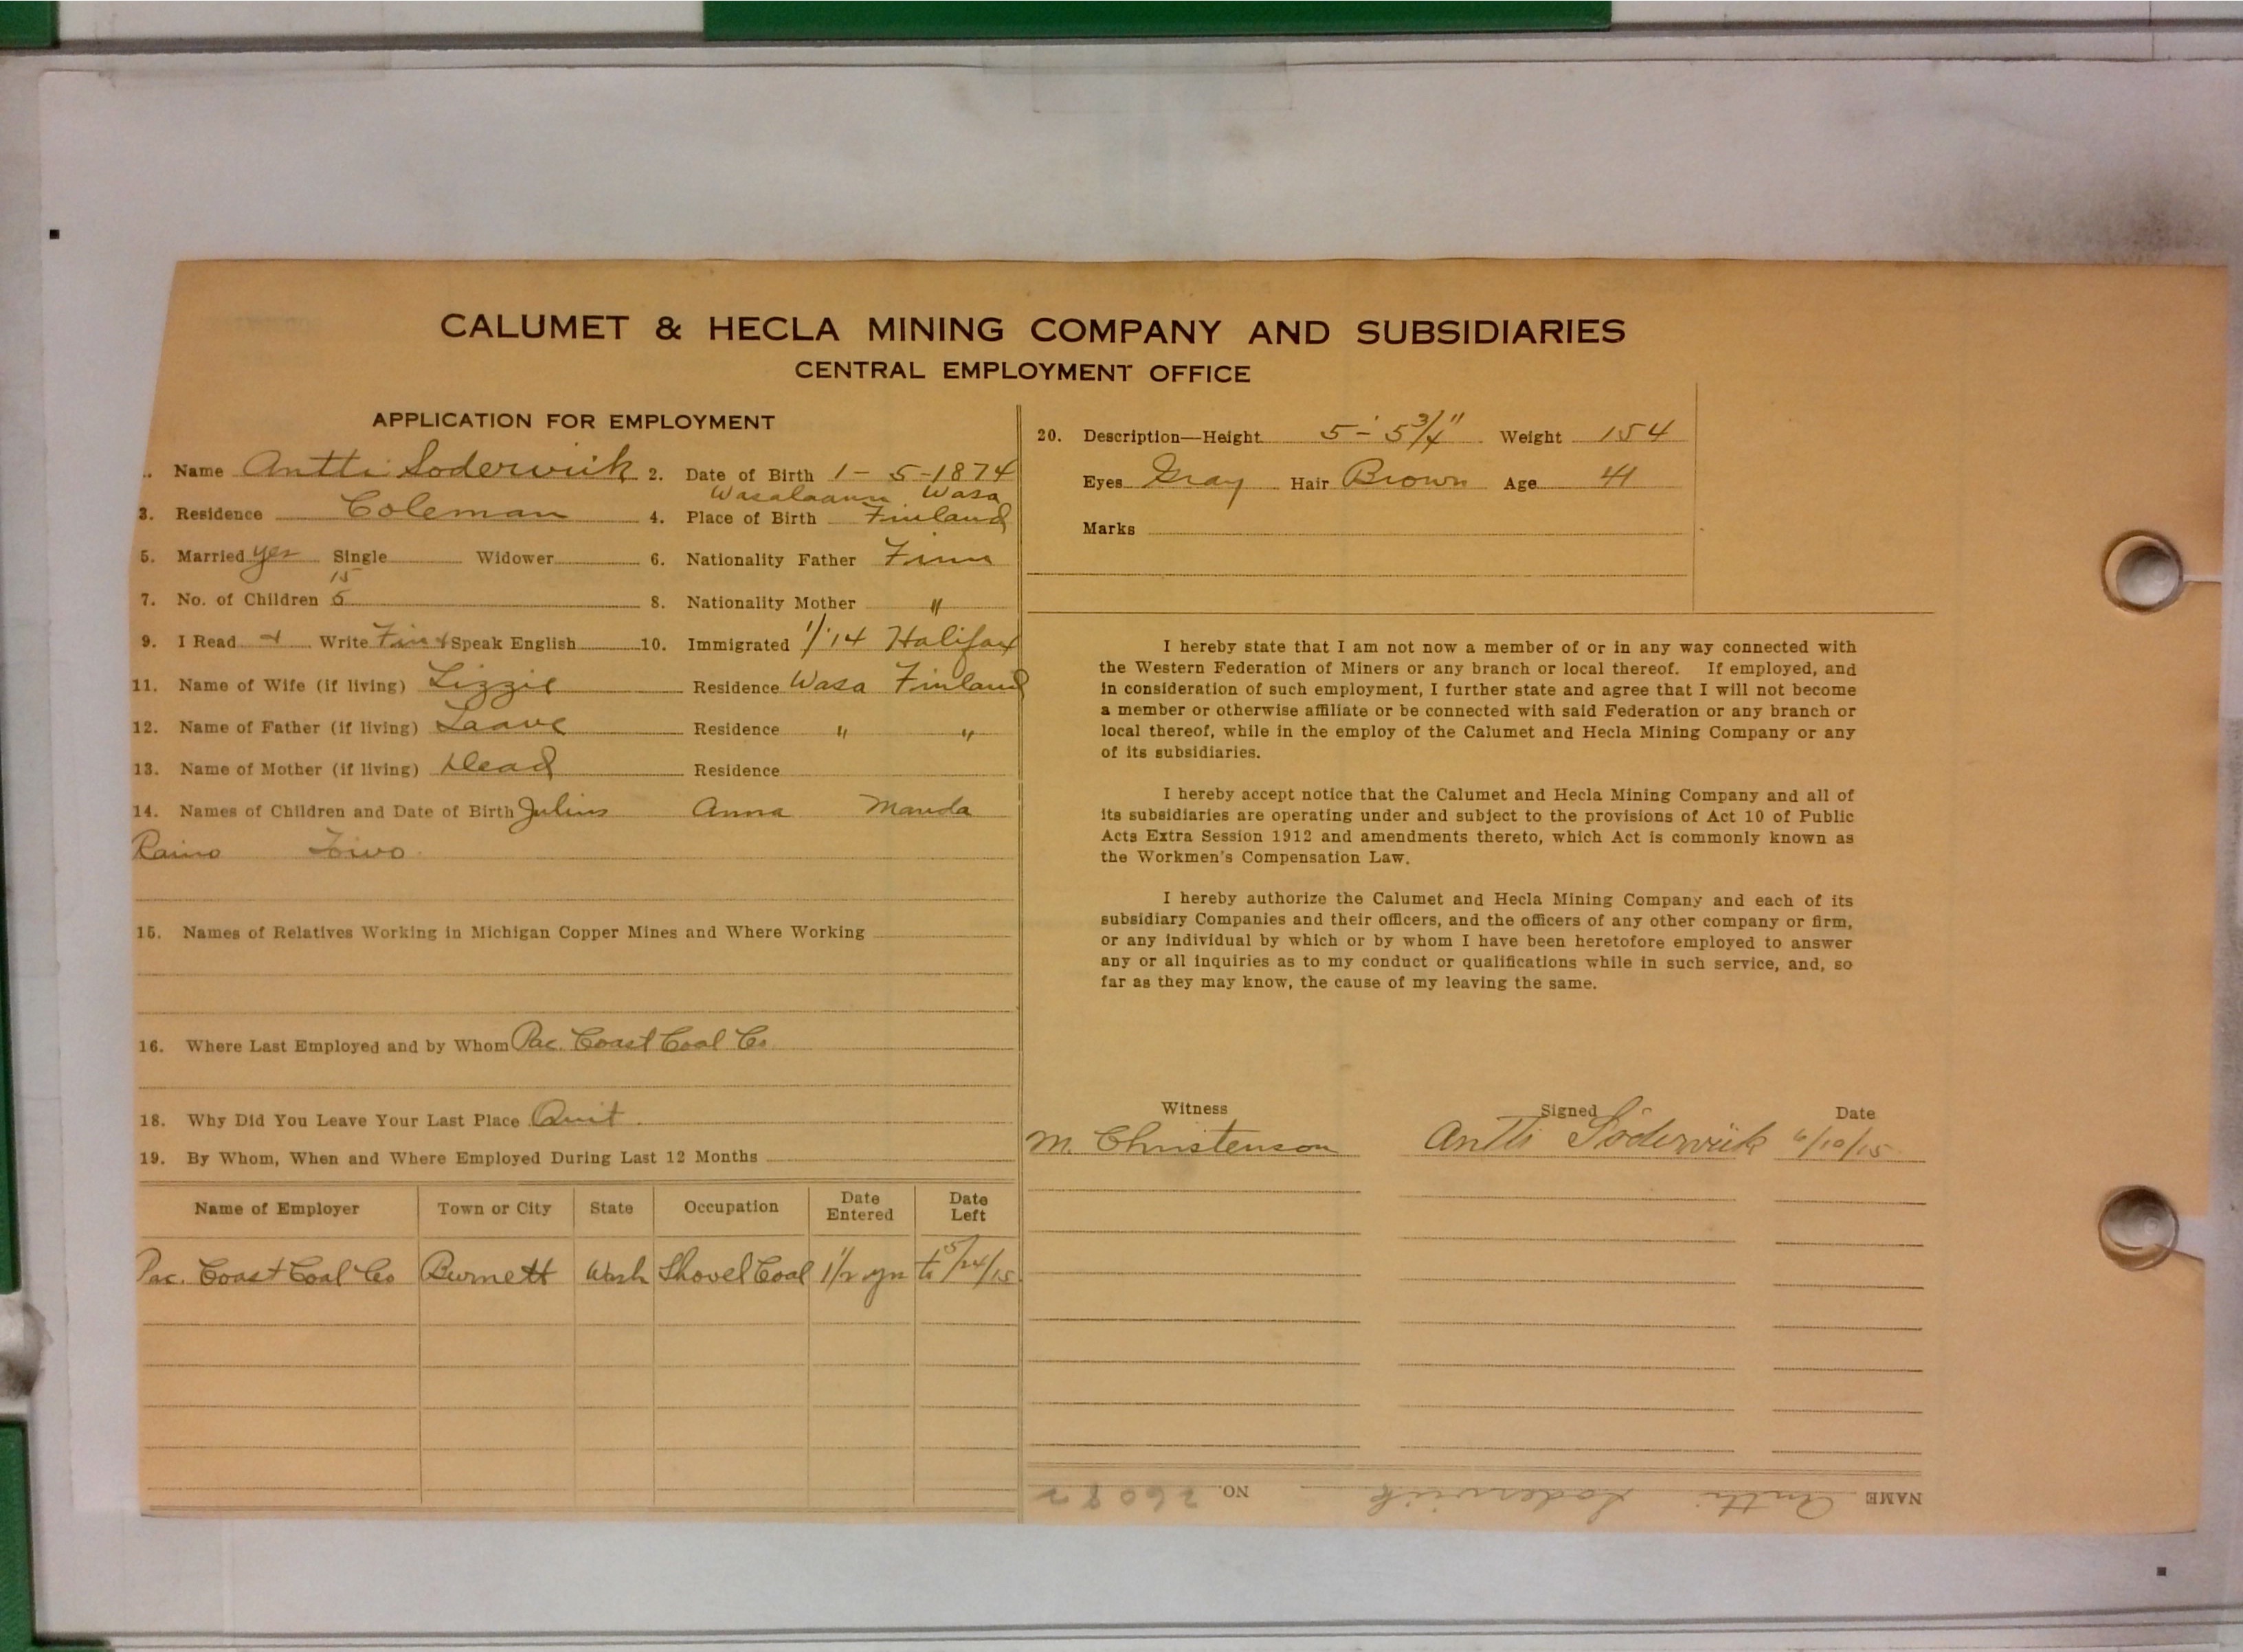 CALUMET & HECLA MINING COMPANY AND SUBSIDIARIES
CENTRAL EMPLOYMENT OFFICE
APPLICATION FOR EMPLOYMENT
Name Antti Soderwiik 2. Date of Birth 1-5-1874
Wasalaanni Wasa
3. Residence Coleman 4. Place of Birth Finland
5. Married yes Single Widower 6. Nationality Father Finn
15
7. No. of Children 5 8. Nationality Mother "
9. I Read + Write Fin + Speak English 10. Immigrated 1/'14 Halifax
11. Name of Wife (if living) Lizzie Residence Wasa Finland
12. Name of Father (if living) Residence " "
13. Name of Mother (if living) Dead Residence
14. Names of Children and Date of Birth Julius Anna Manda
Raino Toivo
15. Names of Relatives Working in Michigan Copper Mines and Where Working
16. Where Last Employed and by Whom Pac. Coast Coal Co
18. Why Did You Leave Your Last Place Quit
19. By Whom, When and Where Employed During Last 12 Months
Name of Employer Town or City State Occupation Date Entered Date Left
Pac. Coast Coal Co Burnett Wash Shovel Coal 1 1/2 yrs to 5/24/15
20. Description—Height 5'-5 3/4" Weight 154
Eyes Gray Hair Brown Age 41
Marks
I hereby state that I am not now a member of or in any way connected with
the Western Federation of Miners or any branch or local thereof. If employed, and
in consideration of such employment, I further state and agree that I will not become
a member or otherwise affiliate or be connected with said Federation or any branch or
local thereof, while in the employ of the Calumet and Hecla Mining Company or any
of its subsidiaries.
I hereby accept notice that the Calumet and Hecla Mining Company and all of
its subsidiaries are operating under and subject to the provisions of Act 10 of Public
Acts Extra Session 1912 and amendments thereto, which Act is commonly known as
the Workmen's Compensation Law.
I hereby authorize the Calumet and Hecla Mining Company and each of its
subsidiary Companies and their officers, and the officers of any other company or firm,
or any individual by which or by whom I have been heretofore employed to answer
any or all inquiries as to my conduct or qualifications while in such service, and, so
far as they may know, the cause of my leaving the same.
Witness Signed Date
M. Christenson Antti Söderwiik 6/10/15
NAME Antti Soderwiik NO. 26082